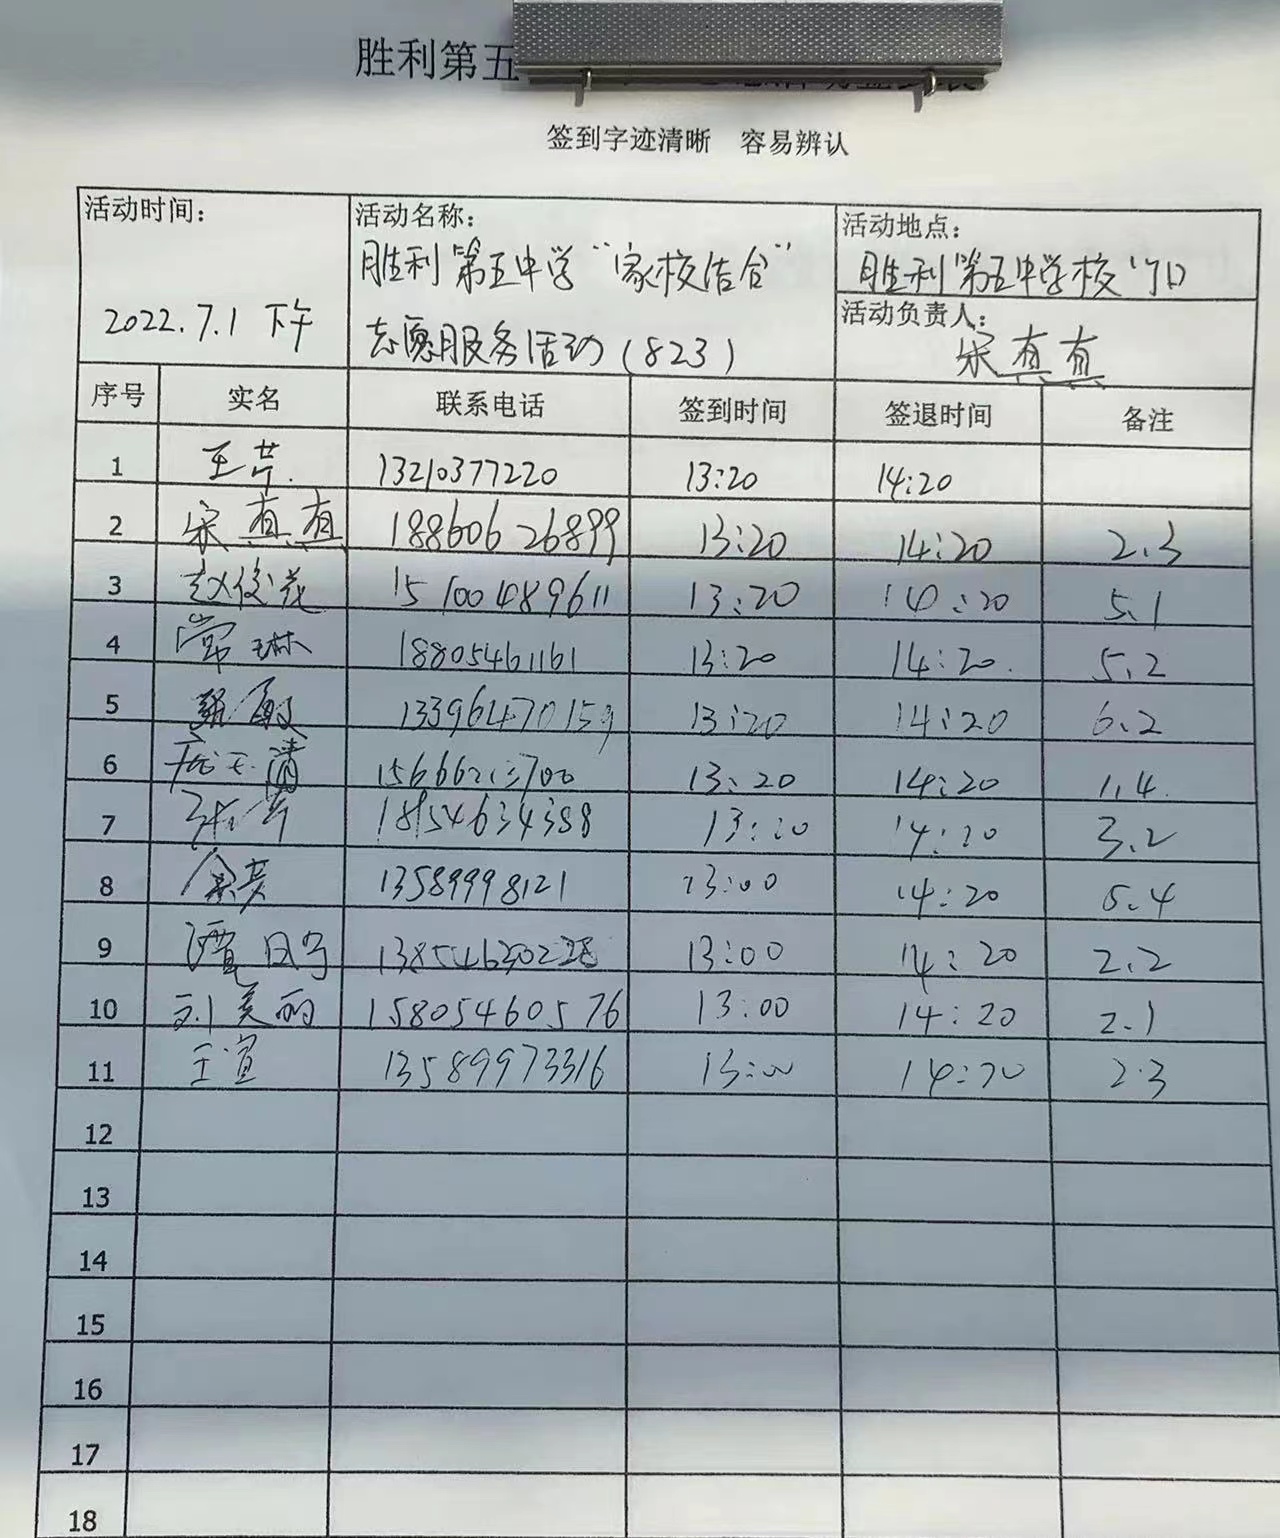 胜利第五
签到字迹清晰 容易辨认
活动时间：
2022.7.1 下午
活动名称：
胜利第五中学“家校结合”
志愿服务活动（823）
活动地点：
胜利第五中学校门口
活动负责人：
宋真真
序号 实名 联系电话 签到时间 签退时间 备注
1 王芹 13210377220 13:20 14:20
2 宋真真 18860626899 13:20 14:20 2.3
3 赵俊花 15100489611 13:20 14:20 5.1
4 常琳 18805461161 13:20 14:20 5.2
5 13396470159 13:20 14:20 6.2
6 13:20 14:20 1.4
7 18154634388 13:20 14:20 3.2
8 13589998121 13:00 14:20 5.4
9 13:00 14:20 2.2
10 刘美丽 15805460576 13:00 14:20 2.1
11 王宣 13589973316 13:00 14:20 2.3
12
13
14
15
16
17
18